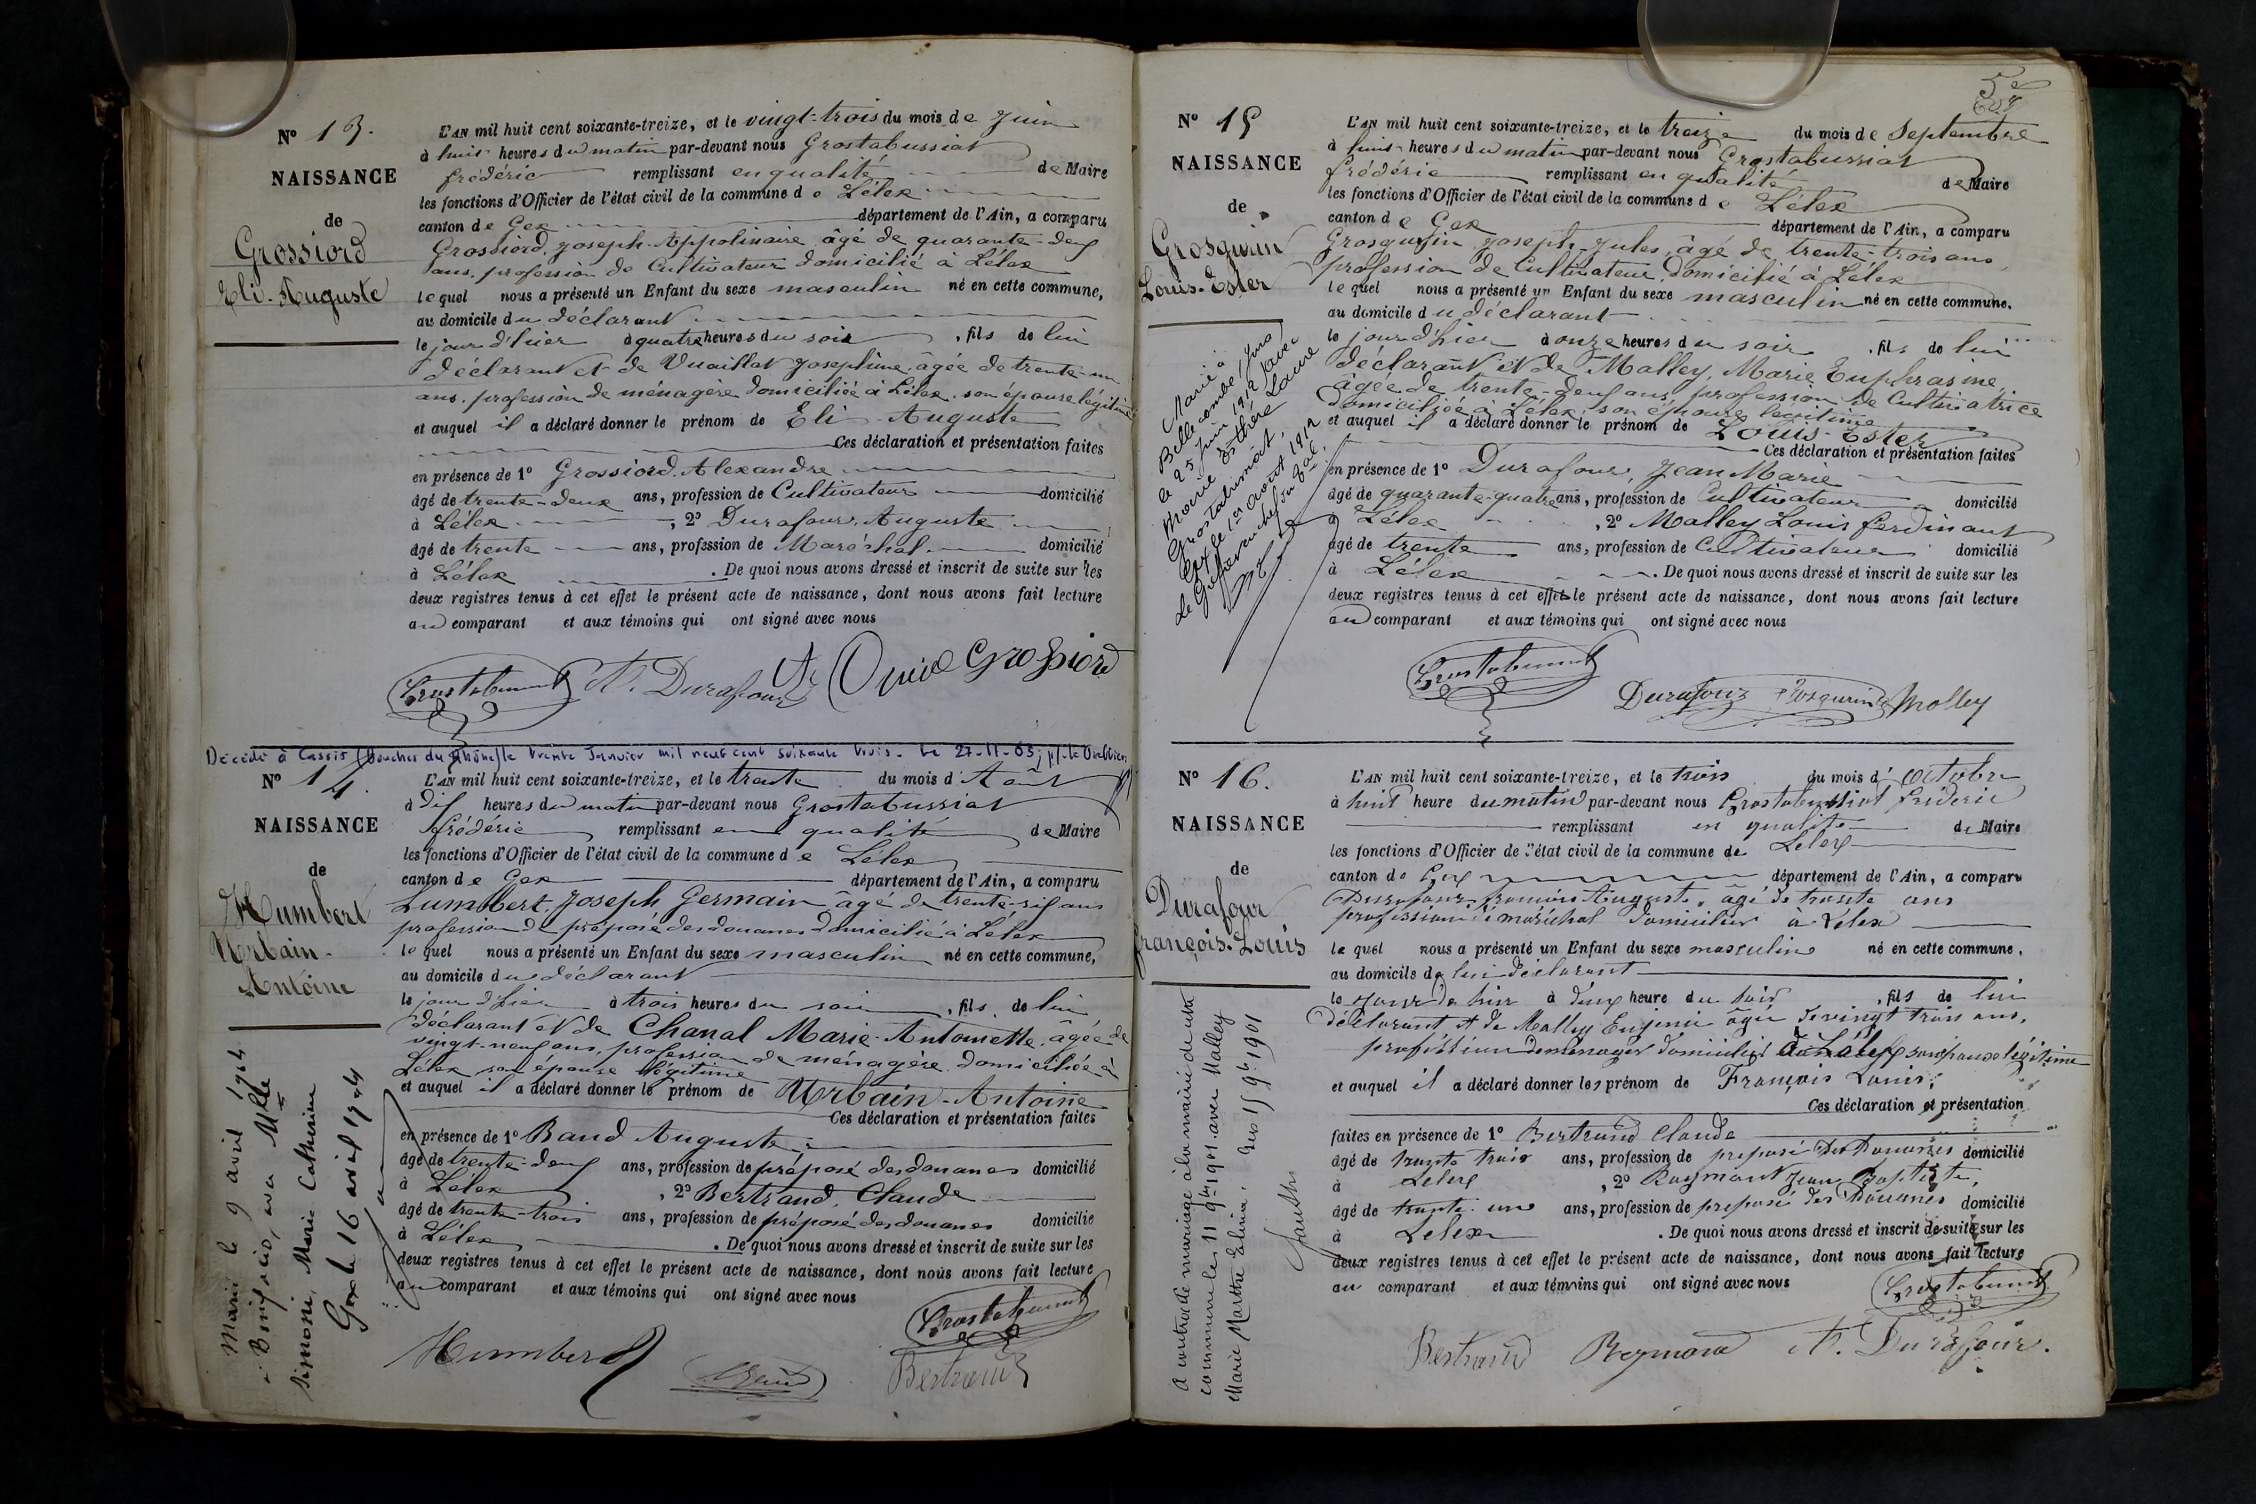 Nº 13.
NAISSANCE
de
Grossiord
Eli-Auguste
L'AN mil huit cent soixante-treize, et le vingt-trois du mois de Juin
à huit heures du matin par-devant nous Grostabussiat
frédéric remplissant en qualité de Maire
les fonctions d'Officier de l'état civil de la commune de Lélex
canton de Gex département de l'Ain, a comparu
Grossiord, Joseph-Appolinaire âgé de quarante-deux
ans, profession de Cultivateur domicilié à Lélex
lequel nous a présenté un Enfant du sexe masculin né en cette commune,
au domicile du déclarant
le jour d'hier à quatre heures du soir, fils de lui
déclarant et de Vuaillat Joséphine âgée de trente-un
ans, profession de ménagère domiciliée à Lélex, son épouse légitime
et auquel il a déclaré donner le prénom de Eli-Auguste
Ces déclaration et présentation faites
en présence de 1º Grossiord Alexandre
âgé de trente-deux ans, profession de Cultivateur domicilié
à Lélex, 2º Durafour Auguste
âgé de trente ans, profession de Maréchal domicilié
à Lélex. De quoi nous avons dressé et inscrit de suite sur les
deux registres tenus à cet effet le présent acte de naissance, dont nous avons fait lecture
au comparant et aux témoins qui ont signé avec nous
Grostabussiat A. Durafour Grossiord
Décédé à Cassis (Bouches du Rhône) le trente Janvier mil neuf cent soixante trois. Le 27-11-63
Nº 14.
NAISSANCE
de
Humbert
Urbain-
Antoine
L'AN mil huit cent soixante-treize, et le trente du mois d'Août
à dix heures du matin par-devant nous Grostabussiat
frédéric remplissant en qualité de Maire
les fonctions d'Officier de l'état civil de la commune de Lélex
canton de Gex département de l'Ain, a comparu
Humbert, Joseph Germain âgé de trente-six ans
profession de préposé des douanes domicilié à Lélex
lequel nous a présenté un Enfant du sexe masculin né en cette commune,
au domicile du déclarant
le jour d'hier à trois heures du soir, fils de lui
déclarant et de Chanal Marie-Antoinette, âgée de
vingt-neuf ans, profession de ménagère domiciliée à
Lélex son épouse légitime
et auquel il a déclaré donner le prénom de Urbain-Antoine
Ces déclaration et présentation faites
en présence de 1º Baud Auguste
âgé de trente-deux ans, profession de préposé des douanes domicilié
à Lélex, 2º Bertrand Claude
âgé de trente-trois ans, profession de préposé des douanes domicilié
à Lélex. De quoi nous avons dressé et inscrit de suite sur les
deux registres tenus à cet effet le présent acte de naissance, dont nous avons fait lecture
au comparant et aux témoins qui ont signé avec nous
Grostabussiat
Humbert Baud Bertrand
Marié le 9 avril
avec Melle
Simoni, Marie Catherine
Gex le 16 avril
Nº 15
NAISSANCE
de
Grosgurin
Louis-Ester
L'AN mil huit cent soixante-treize, et le treize du mois de Septembre
à huit heures du matin par-devant nous Grostabussiat
frédéric remplissant en qualité de Maire
les fonctions d'Officier de l'état civil de la commune de Lélex
canton de Gex département de l'Ain, a comparu
Grosgurin Joseph-Jules, âgé de trente-trois ans,
profession de Cultivateur, domicilié à Lélex
lequel nous a présenté un Enfant du sexe masculin né en cette commune.
au domicile du déclarant
le jour d'hier à onze heures du soir, fils de lui
déclarant et de Malley, Marie Euphrasine,
âgée de trente-deux ans, profession de Cultivatrice
domiciliée à Lélex, son épouse légitime
et auquel il a déclaré donner le prénom de Louis-Ester
Ces déclaration et présentation faites
en présence de 1º Durafour, Jean Marie
âgé de quarante-quatre ans, profession de Cultivateur domicilié
à Lélex, 2º Malley Louis ferdinant
âgé de trente ans, profession de Cultivateur domicilié
à Lélex. De quoi nous avons dressé et inscrit de suite sur les
deux registres tenus à cet effet le présent acte de naissance, dont nous avons fait lecture
au comparant et aux témoins qui ont signé avec nous
Grostabussiat
Durafour Grosgurin Molley
Marié à
Bellecombe (Jura)
le 25 Juin 1912 avec
Marie Esther Laure
Grostabussiat,
Gex le 1er Août 1912
Le Greffier en chef du Tal.
Nº 16.
NAISSANCE
de
Durafour
françois-Louis
L'AN mil huit cent soixante-treize, et le trois du mois d'Octobre
à huit heure du matin par-devant nous Grostabussiat frédéric
remplissant en qualité de Maire
les fonctions d'Officier de l'état civil de la commune de Lelex
canton de Gex département de l'Ain, a comparu
Durafour françois Auguste, âgé de trente ans
profession de maréchal domicilier à Lelex
lequel nous a présenté un Enfant du sexe masculin né en cette commune,
au domicile de lui déclarant
le jour de hier à deux heure du soir, fils de lui
déclarant et de Malley Eugénie âgée de vingt trois ans,
profession de ménager domicilié à Lélex son épouse légitime
et auquel il a déclaré donner les prénom de François Louis,
Ces déclaration et présentation
faites en présence de 1º Bertrand Claude
âgé de trente trois ans, profession de preposé des Douanes domicilié
à Lelex, 2º Raymont Jean Baptiste,
âgé de trente un ans, profession de preposé des Douanes domicilié
à Lelex. De quoi nous avons dressé et inscrit de suite sur les
deux registres tenus à cet effet le présent acte de naissance, dont nous avons fait lecture
au comparant et aux témoins qui ont signé avec nous
Grostabussiat
Bertrand Reymond A. Durafour.
A contracté mariage à la mairie de cette
commune le 11 9bre 1901 avec Malley
Marie Marthe Elina. Gex 15 9bre 1901